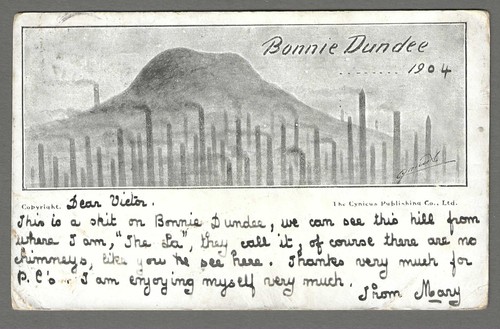 Bonnie Dundee
........ 1904
Cynicus
Copyright.
The Cynicus Publishing Co., Ltd.
Dear Victor.
This is a skit on Bonnie Dundee, we can see this hill from
where I am, "The La", they call it, of course there are no
chimneys, like you see here. Thanks very much for
P.C's. I am enjoying myself very much.
From Mary